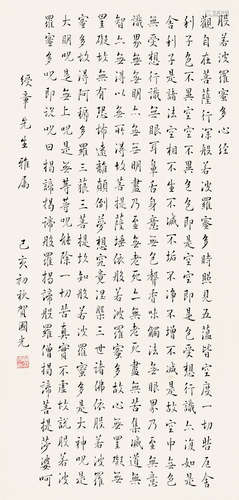 般若波羅蜜多心經
觀自在菩薩行深般若波羅蜜多時照見五蘊皆空度一切苦厄舍
利子色不異空空不異色色即是空空即是色受想行識亦復如是
舍利子是諸法空相不生不滅不垢不淨不增不減是故空中無色
無受想行識無眼耳鼻舌身意無色聲香味觸法無眼界乃至無意
識界無無明亦無無明盡乃至無老死亦無老死盡無苦集滅道無
智亦無得以無所得故菩提薩埵依般若波羅蜜多故心無罣礙無
罣礙故無有恐怖遠離顛倒夢想究竟涅槃三世諸佛依般若波羅
蜜多故得阿耨多羅三藐三菩提故知般若波羅蜜多是大神呪是
大明呪是無上呪是無等等呪能除一切苦真實不虛故說般若波
羅蜜多呪即說呪曰揭諦揭諦般羅揭諦般羅僧揭諦菩提莎婆呵
綬章先生雅属
己亥初秋賀國光